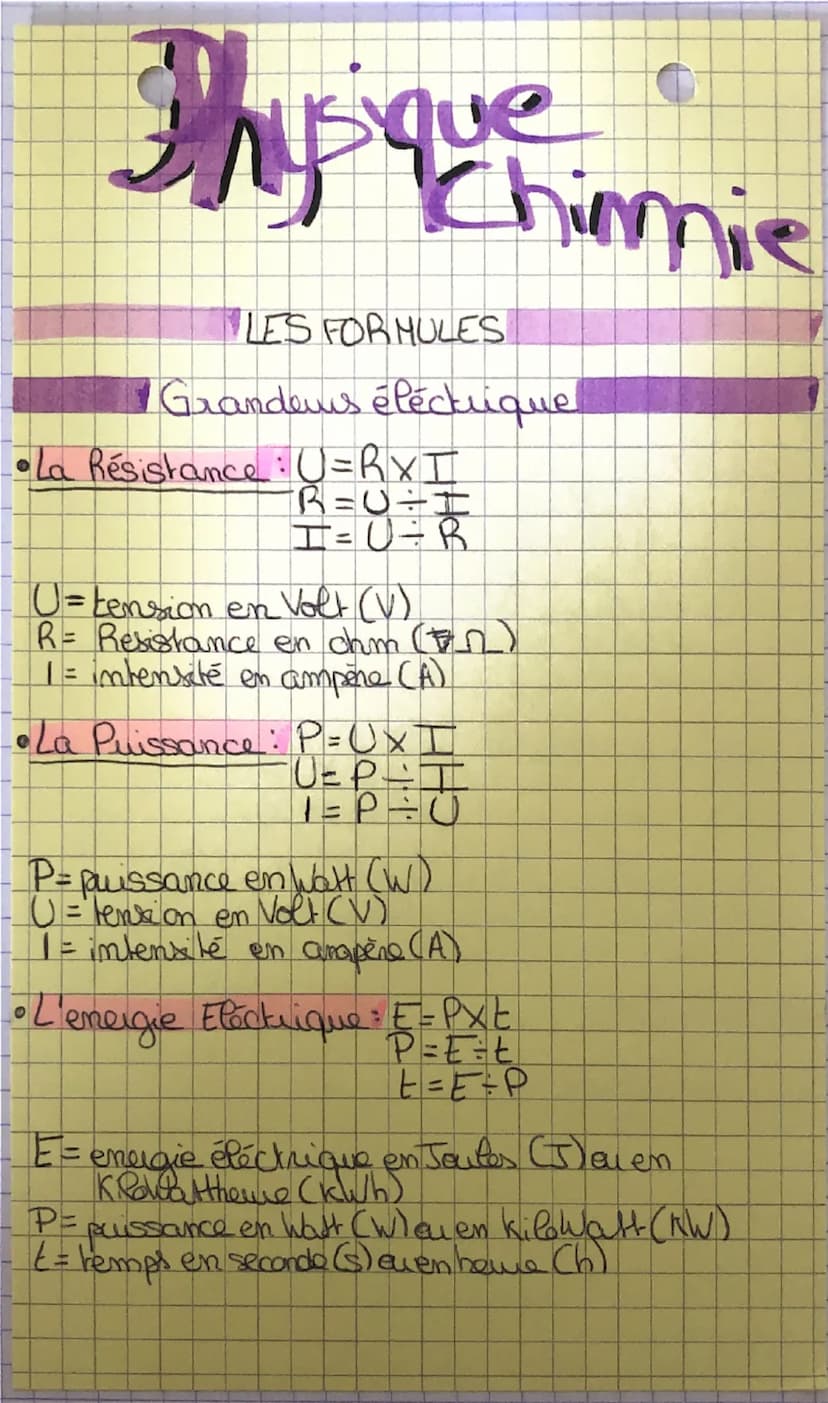 Physique
Chimie
LES FORMULES
Grandeurs éléctrique
•La Résistance: U=R×I
R=U÷I
I=U÷R
U=tension en Volt (V)
R= Resistance en ohm (Ω)
I= intensité en ampère (A)
•La Puissance: P=U×I
U=P÷I
I=P÷U
P=puissance en Watt (W)
U=tension en Volt (V)
I= intensité en ampère (A)
•L'energie Eléctrique: E=P×t
P=E÷t
t=E÷P
E= energie éléctrique en Joules (J) ou en
Kilowattheure (kWh)
P= puissance en Watt (W) ou en kiloWatt (KW)
t= temps en seconde (s) ou en heure (h)